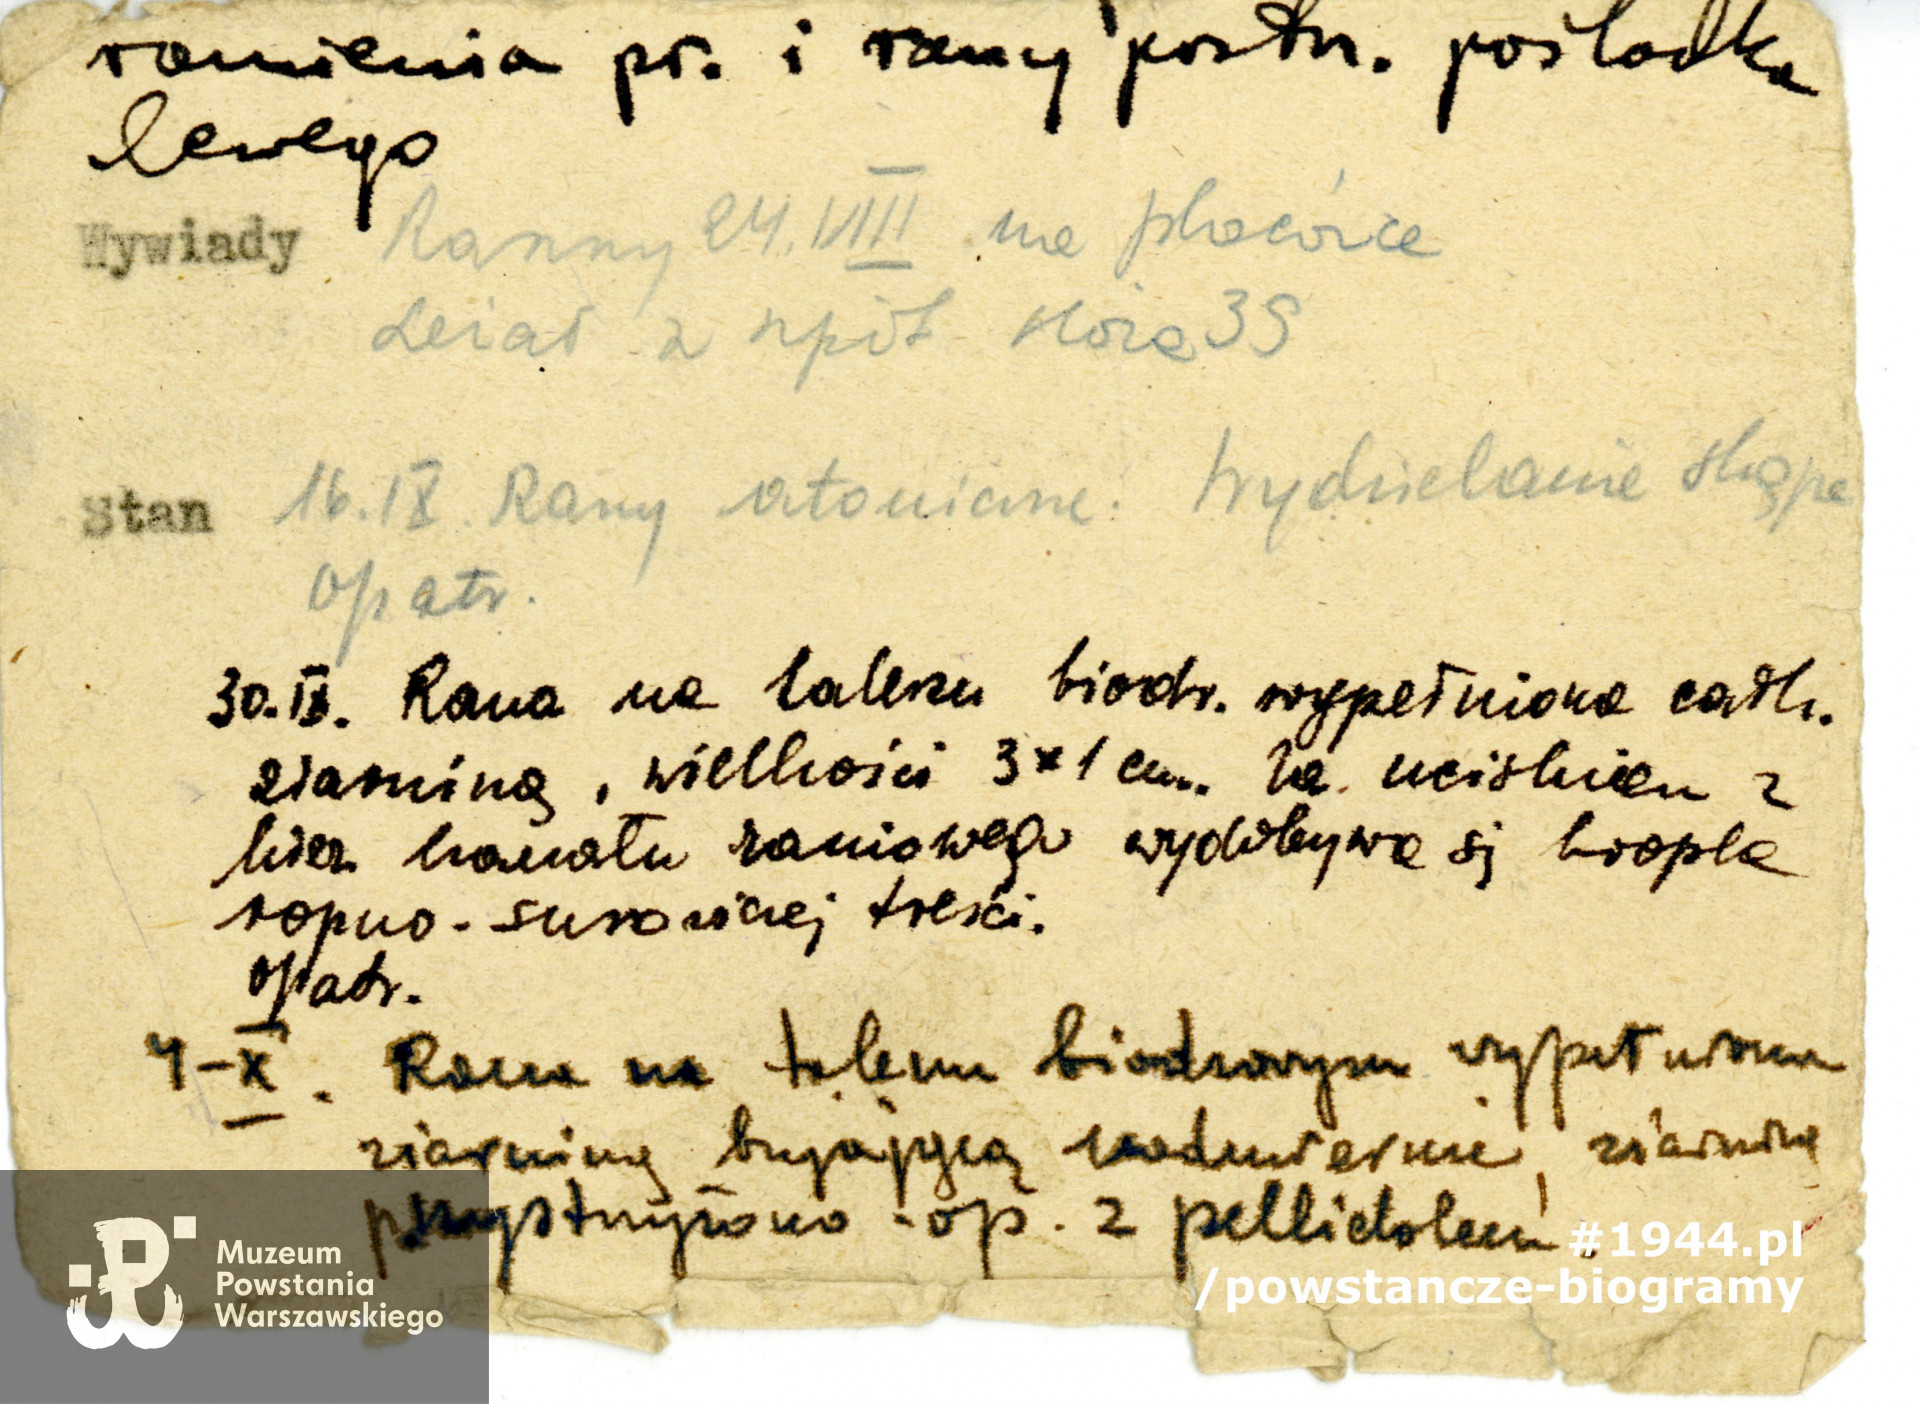 ramienia pr. i rany postrz. pośladka
lewego
Wywiady Ranny 24.VIII na placówce
Leżał z szpit. Hoża 39
Stan 16.IX Rany atoniczne. Wydzielanie skąpe
Opatr.
30.IX. Rana na talerzu biodr. wypełniona całk.
ziarniną, wielkości 3x1 cm. Za uciskiem z
kier. kanału raniowego wydobywa się kropla
ropno-surowiczej treści.
Opatr.
4-X. Rana na talerzu biodrowym wypełniona
ziarniną bujającą nadmiernie, ziarnina
przystrzyżono - op. z pellidolem.
Muzeum
Powstania
Warszawskiego
#1944.pl
/powstancze-biogramy